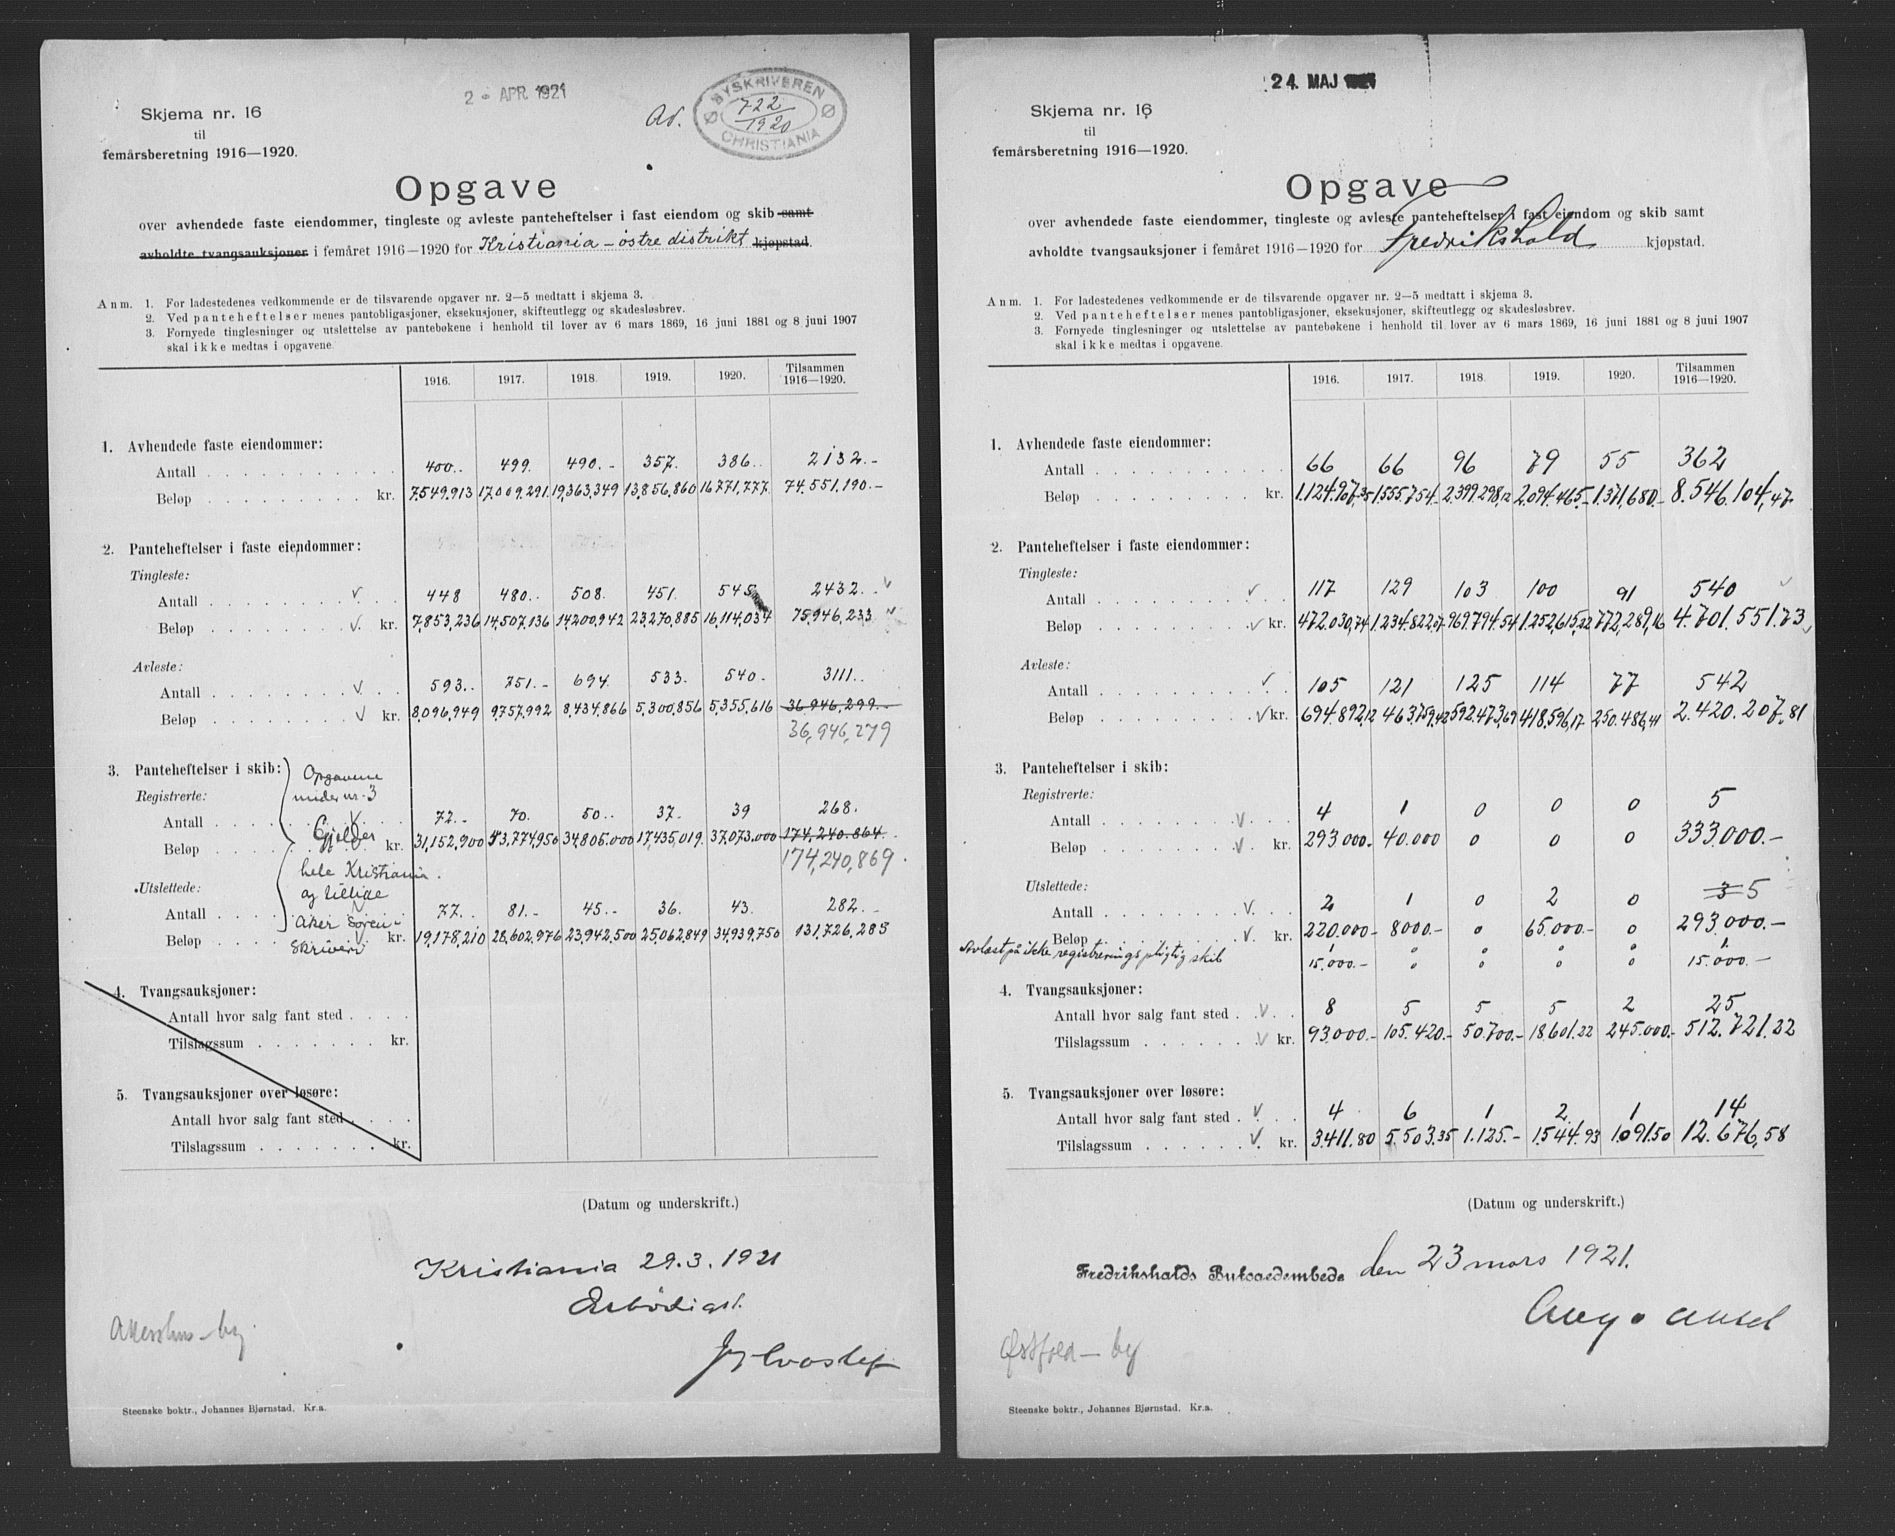 2 - APR 1921
Ad.
BYSKRIVEREN
722
1920
CHRISTIANIA
Skjema nr. 16
til
femårsberetning 1916—1920.
Opgave
over avhendede faste eiendommer, tingleste og avleste panteheftelser i fast eiendom og skib samt
avholdte tvangsauksjoner i femåret 1916—1920 for Kristiania - østre distrikt kjøpstad.
Anm. 1. For ladestedenes vedkommende er de tilsvarende opgaver nr. 2—5 medtatt i skjema 3.
2. Ved panteheftelser menes pantobligasjoner, eksekusjoner, skifteutlegg og skadesløsbrev.
3. Fornyede tinglesninger og utslettelse av pantebøkene i henhold til lover av 6 mars 1869, 16 juni 1881 og 8 juni 1907
skal ikke medtas i opgavene.
1916. 1917. 1918. 1919. 1920. Tilsammen 1916—1920.
1. Avhendede faste eiendommer:
Antall 400.. 499. 490.- 357. 386.. 2132.-
Beløp kr. 7.549,913 17,009,291 19,363,349 13,856,860 16,771,777 74.551.190.-
2. Panteheftelser i faste eiendommer:
Tingleste:
Antall 448 480.. 508. 451. 545 2432..
Beløp kr. 7,853,236 14,507,136 14,200,942 23,270,885 16,114,034 75,946,233
Avleste:
Antall 593.. 751.- 694. 533. 540- 3111..
Beløp kr. 8,096,949 9,757,992 8,434,866 5,300,856 5,355,616 36,946,299.-
36,946,279
3. Panteheftelser i skib: Opgavene
Registrerte: under nr. 3
Antall 72.- 70. 50.. 37. 39 268.
Gjelder
Beløp kr. 31,152,900 53,774,950 34,805.000 17,435,019. 37,073.000 174,240.864.
174,240,869.
hele Kristiania.
Utslettede: og tillige
Antall 77. 81.- 45.- 36. 43. 282.-
Aker Soren-
Beløp kr. 19,178,210 28,602,976 23,942,500 25,062,849 34,939,750 131,726,285
skriveri
4. Tvangsauksjoner:
Antall hvor salg fant sted
Tilslagssum kr.
5. Tvangsauksjoner over løsøre:
Antall hvor salg fant sted
Tilslagssum kr.
(Datum og underskrift.)
Kristiania 29.3.1921
Ærbødigst.
Akershus - by.
Steenske boktr., Johannes Bjørnstad. Kr.a.
24. MAJ 1921
Skjema nr. 16
til
femårsberetning 1916—1920.
Opgave
over avhendede faste eiendommer, tingleste og avleste panteheftelser i fast eiendom og skib samt
avholdte tvangsauksjoner i femåret 1916—1920 for Fredrikshald kjøpstad.
Anm. 1. For ladestedenes vedkommende er de tilsvarende opgaver nr. 2—5 medtatt i skjema 3.
2. Ved panteheftelser menes pantobligasjoner, eksekusjoner, skifteutlegg og skadesløsbrev.
3. Fornyede tinglesninger og utslettelse av pantebøkene i henhold til lover av 6 mars 1869, 16 juni 1881 og 8 juni 1907
skal ikke medtas i opgavene.
1916. 1917. 1918. 1919. 1920. Tilsammen 1916—1920.
1. Avhendede faste eiendommer:
Antall 66 66 96 79 55 362
Beløp kr. 1.124.907,35 1.555.754.- 2.399.298,12 2.094.465.- 1.371,680.- 8.546.104,47
2. Panteheftelser i faste eiendommer:
Tingleste:
Antall 117 129 103 100 91 540
Beløp kr. 472.030,74 1.234.822,07 969.794.54 1.252,615,22 772,289,16 4.701.551.73
Avleste:
Antall 105 121 125 114 77 542
Beløp kr. 694.892,12 463.759,42 592.473,69 418.596,17 250.486,41 2.420.207,81
3. Panteheftelser i skib:
Registrerte:
Antall 4 1 0 0 0 5
Beløp kr. 293.000.- 40.000 0 0 0 333.000.-
Utslettede:
Antall 2 1 0 2 0 3 5
Beløp kr. 220.000.- 8000.- 0 65.000.- 0 293.000.-
Avlæst på ikke registreringspligtig skib 1. 0 0 0 0 1.
15.000.- 0 0 0 0 15.000.-
4. Tvangsauksjoner:
Antall hvor salg fant sted 8 5 5 5 2 25
Tilslagssum kr. 93.000.- 105.420.- 50.700.- 18.601.22 245.000.- 512.721.22
5. Tvangsauksjoner over løsøre:
Antall hvor salg fant sted 4 6 1 2 1 14
Tilslagssum kr. 3.411.80 5.503.35 1.125.- 1.544.93 1.091.50 12.676,58
(Datum og underskrift.)
Fredrikshalds Byfogedembede den 23 mars 1921.
Østfold - by
Steenske boktr., Johannes Bjørnstad. Kr.a.